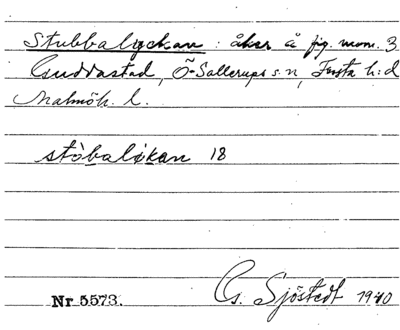 Stubbalyckan : åker å fig. mom. 3
Gudvastad, Ö-Sallerups s:n, Frosta h:d
Malmöh. l.
stóbalỳkan 18
Nr 5573. G. Sjöstedt 1940